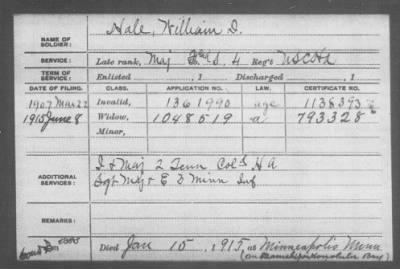 NAME OF SOLDIER: Hale, William D.
SERVICE: Late rank, Maj S, 4 Reg't USCHA
TERM OF SERVICE: Enlisted , 1 Discharged , 1
DATE OF FILING. CLASS. APPLICATION NO. LAW. CERTIFICATE NO.
1907 Mar 22 Invalid, 1361990 age 1138393
1915 June 8 Widow, 1048519 a 793328
Minor,
ADDITIONAL SERVICES: F & Maj 2 Tenn Cold H A
Sgt Maj & E 3 Minn Inf
REMARKS:
Died Jan 15, 1915, at Minneapolis Minn